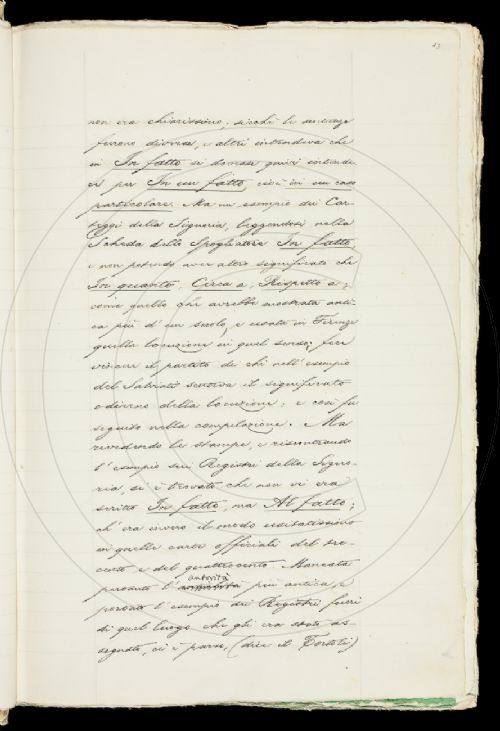 13
non era chiarissimo; sicchè le sentenze
furono diverse, e altri intendeva che
in In fatto si dovesse quivi intende-
re per In un fatto, cioè in un caso
particolare. Ma un esempio dei Car-
teggi della Signoria, leggendosi nella
Scheda dello Spogliatore In fatto
e non potendo aver altro significato che
In quanto, Circa a, Rispetto a;
come quello che avrebbe mostrata anti-
ca più d'un secolo, e usata in Firenze
quella locuzione in quel senso; fece
vincere il partito di chi nell'esempio
del Salviati sentiva il significato
odierno della locuzione: e così fu
seguito nella compilazione. Ma
rivedendo le stampe, e riscontrando
l'esempio sui Registri della Signo-
ria, si è trovato che non vi era
scritto In fatto, ma Al fatto;
ch'era invero il modo usitatissimo
in quelle carte officiali del tre-
cento e del quattrocento. Mancata
pertanto l'autorità più antica, e
portato l'esempio dei Registri fuori
di quel luogo che gli era stato as-
segnato, ci è parso, (dice il Tortoli)